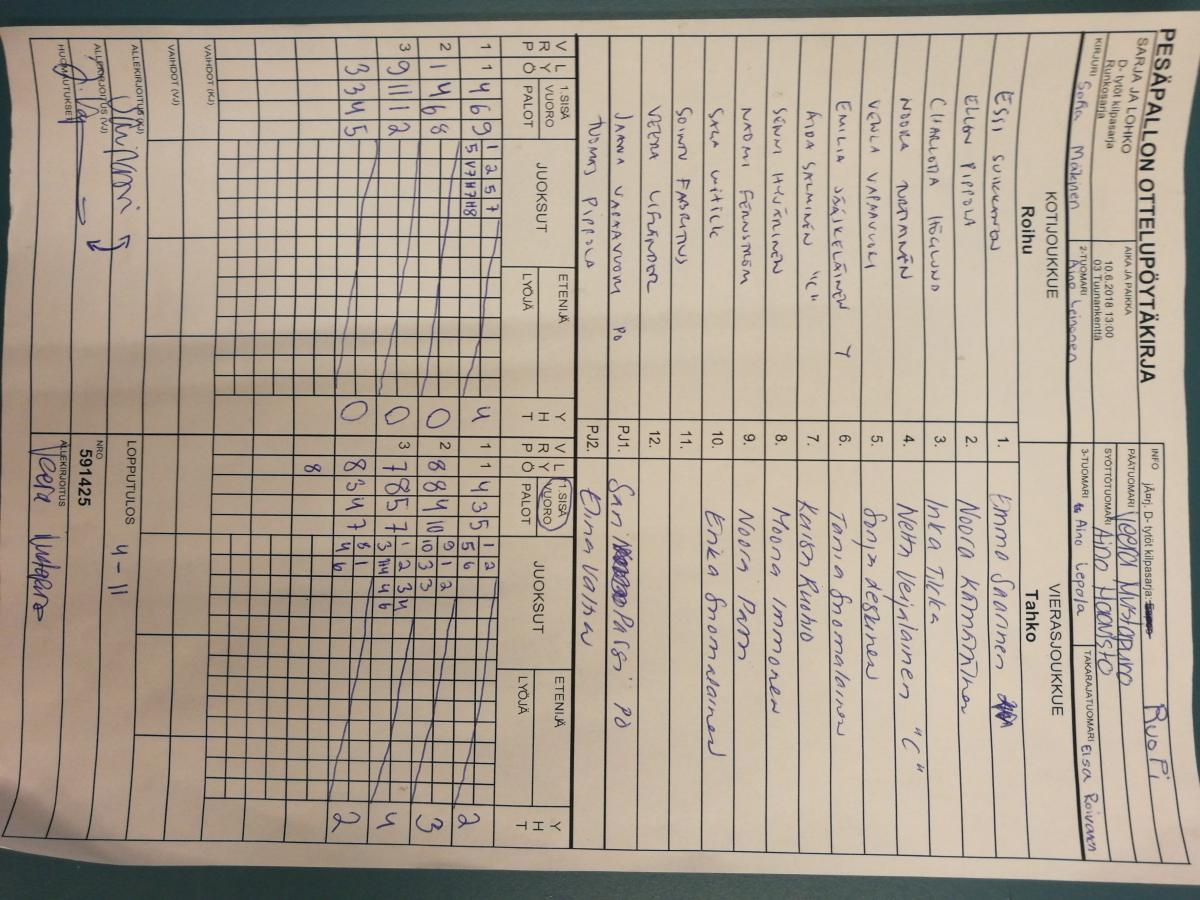 PESÄPALLON OTTELUPÖYTÄKIRJA
SARJA JA LOHKO
D- tytöt kilpasarja
Runkosarja
AIKA JA PAIKKA
10.6.2018 13:00
03 Tuunankenttä
INFO järj. D- tytöt kilpasarja:
RuoPi
PÄÄTUOMARI Veera Mustapuro
SYÖTTÖTUOMARI Aino Haavisto
KIRJURI Sofia Mäkinen
2-TUOMARI Aino Leinonen
3-TUOMARI Aino Lepola
TAKARAJATUOMARI Elsa Roivanen
KOTIJOUKKUE
VIERASJOUKKUE
Roihu
Tahko
ESSI SUIKKANEN 1. Emma Saarinen
ELLEN PIPPOLA 2. Noora Kämäräinen
CHARLOTTA HÖGLUND 3. Inka Tilkka
NOORA NURMINEN 4. Neita Veijalainen "C"
VENLA VAPAAVUORI 5. Sonja Leskinen
EMILIA JÄÄSKELÄINEN Y 6. Tania Suomalainen
AIDA SALMINEN "C" 7. Kerttu Ruohio
SENNI HYVÄRINEN 8. Moona Immonen
NAOMI FERNSTRÖM 9. Noora Parri
SAGA WITICK 10. Erika Suomalainen
SOINTU FABRITIUS 11.
VEERA 12.
JAANA VAPAAVUORI PO PJ1. Sari Parsi PO
TUOMAS PIPPOLA PJ2. Elina Valta
V P L Y R Ö 1.SISÄ VUORO PALOT JUOKSUT ETENIJÄ LYÖJÄ Y H T
V P L Y R Ö 1.SISÄ VUORO PALOT JUOKSUT ETENIJÄ LYÖJÄ Y H T
1 1 4 6 9 1 2 5 7 4
5 V7 H7 H8
1 1 4 3 5 1 2 2
5 6
2 1 4 6 8 0
2 8 8 4 10 9 1 2 3
10 3 3
3 9 11 1 2 0
3 7 8 5 7 1 2 3 4 4
3 4 6
3 3 4 5 0
8 3 4 7 8 1 2
4 6
8
VAIHDOT (KJ)
VAIHDOT (VJ)
ALLEKIRJOITUS (KJ)
ALLEKIRJOITUS (VJ)
HUOMAUTUKSET
LOPPUTULOS 4 - 11
NRO
591425
ALLEKIRJOITUS
Veera Mustapuro